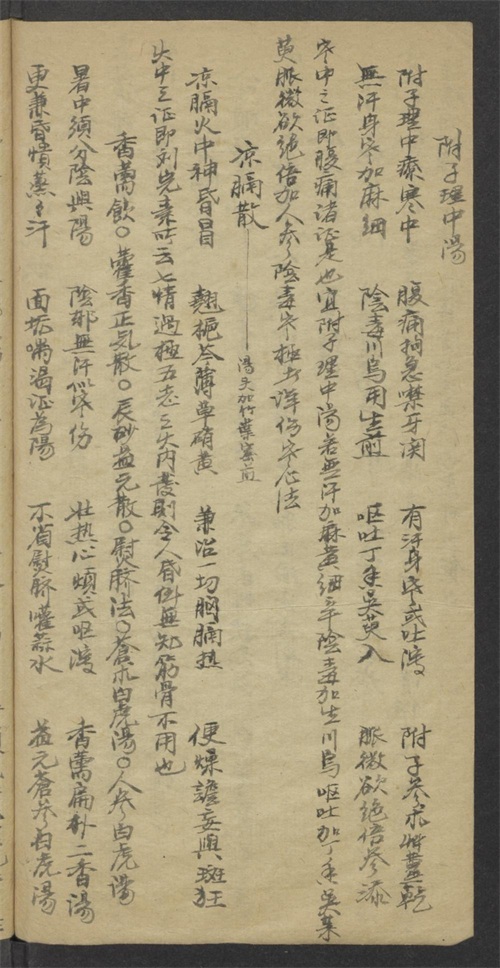 附子理中湯
附子理中療寒中　腹痛拘急噤牙関　有汗身寒或吐瀉　附子參朮草薑乾
無汗身寒加麻細　陰毒川烏用生煎　呕吐丁香吳萸入　脈微欲絶倍參添
寒中之证即腹痛諸证是也宜附子理中湯若無汗加麻黄細辛陰毒加生川烏呕吐加丁香吳茱
萸脈微欲絶倍加人參陰毒寒極者詳伤寒心法
凉膈散　湯矢加竹葉蜜煎
凉膈火中神昏冒　翹梔芩薄草硝黄　兼治一切胸膈热　便燥譫妄與斑狂
火中之证即刘完素所云七情過極五志之火内發則令人昏倒無知筋骨不用也
香薷飲○藿香正気散○辰砂益元散○熨脐法○蒼朮白虎湯○人參白虎湯
暑中須分陰與陽　陰邪無汗似寒伤　壮热心煩或呕瀉　香薷扁朴二香湯
更兼昏愦蒸蒸汗　面垢喘渴证為陽　不省熨脐灌蒜水　益元蒼參白虎湯